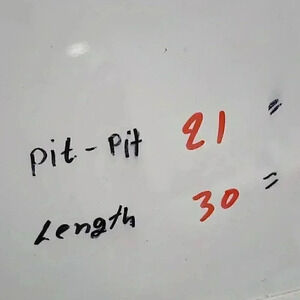 Pit - Pit 21 "
Length 30 "